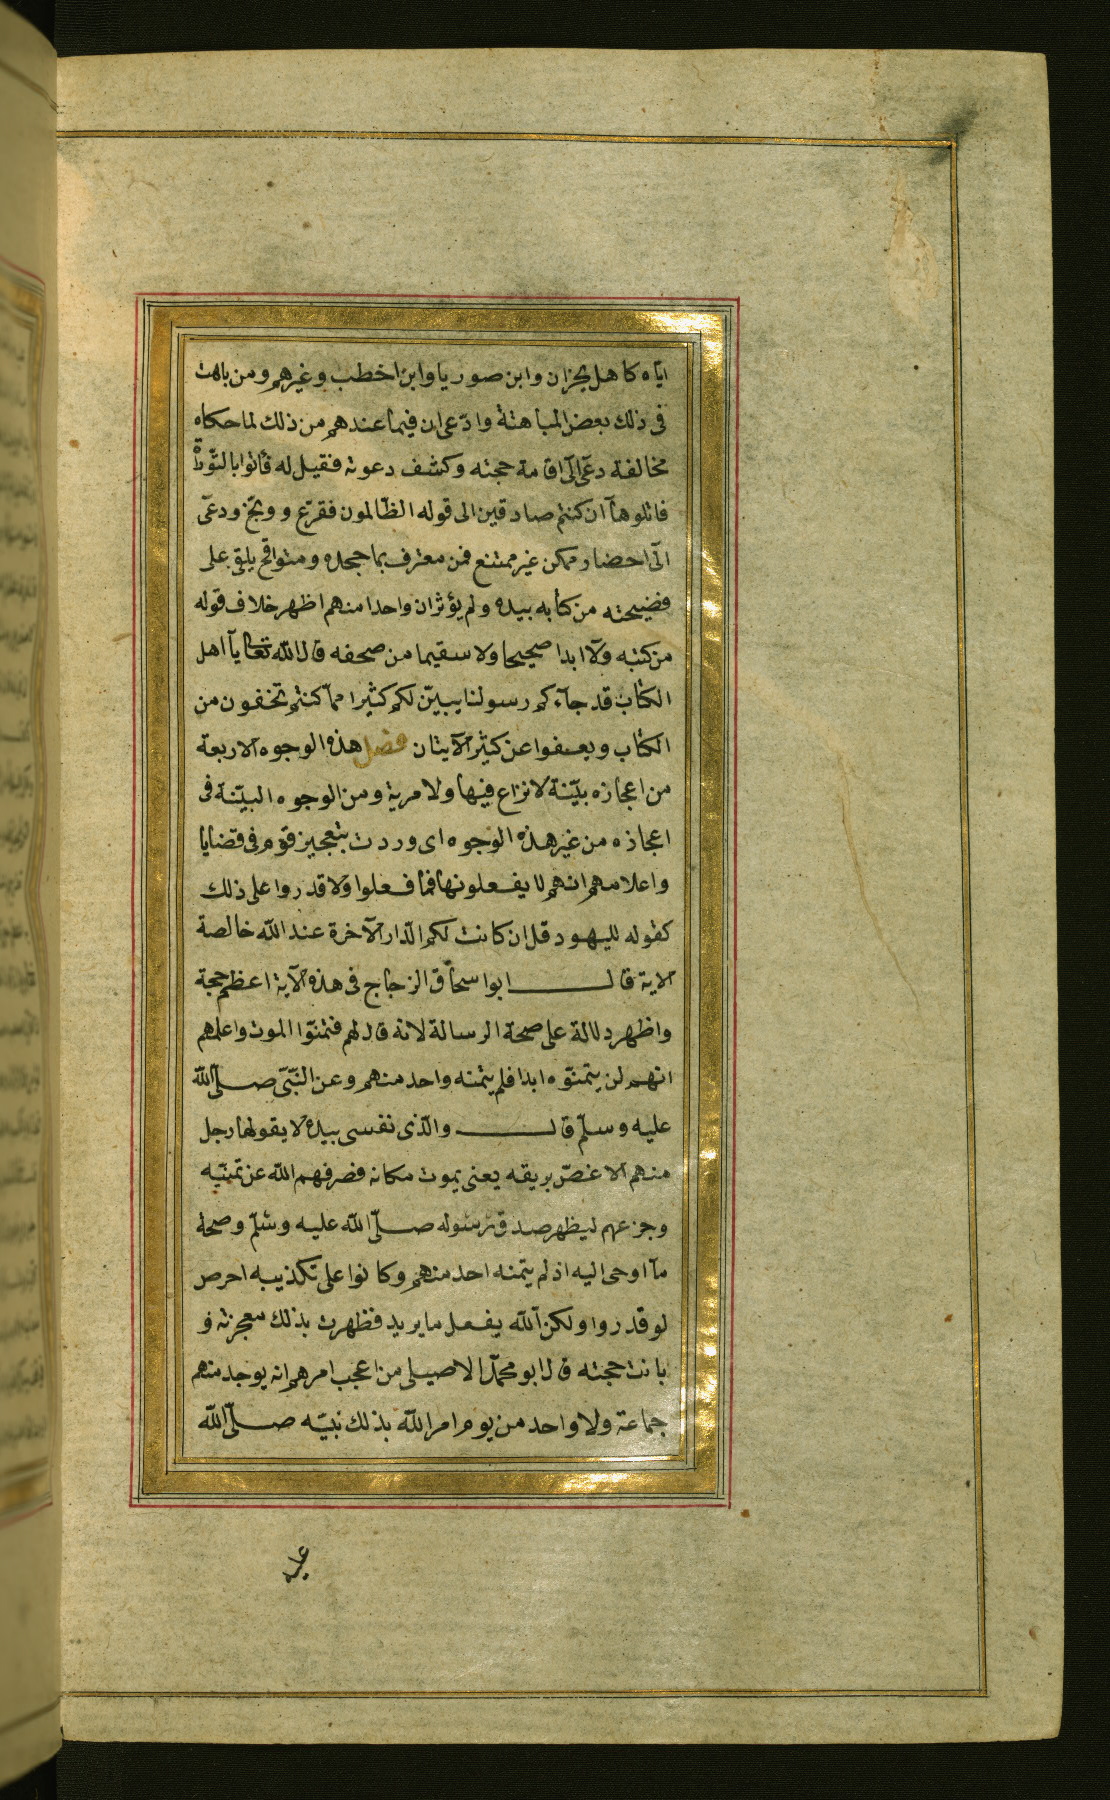 اياه كاهل نجران وابن صوريا وابن اخطب وغيرهم ومن باهت
فى ذلك بعض المباهتة وادّعى ان فيما عندهم من ذلك لما حكاه
مخالفة دعى الى اقامة حجته وكشف دعوته فقيل له فأتوا بالتّورية
فاتلوها ان كنتم صادقين الى قوله الظّالمون فقرّع ووبّخ ودعى
الى احضار ممكن غير ممتنع فمن معترف بما جحده ومتواقح يلقى على
فضيحته من كتابه بيده ولم يؤثر ان واحدا منهم اظهر خلاف قوله
من كتبه ولا ابدا صحيحا ولا سقيما من صحفه قال الله تعالى يآ اهل
الكتاب قد جآءكم رسولنا يبيّن لكم كثيرا ممّا كنتم تخفون من
الكتاب ويعفوا عن كثير الآيتان فصل هذه الوجوه الاربعة
من اعجازه بيّنة لا نزاع فيها ولا مرية ومن الوجوه البيّنة فى
اعجازه من غير هذه الوجوه اى وردت بتعجيز قوم فى قضايا
واعلامهم انهم لا يفعلونها فما فعلوا ولا قدروا على ذلك
كقوله لليهود قل ان كانت لكم الدّار الآخرة عند الله خالصة
الاية قال ابواسحاق الزجاج فى هذه الآية اعظم حجة
واظهر دلالة على صحة الرسالة لانه قال لهم فتمنّوا الموت واعلمهم
انهم لن يتمنّوه ابدا فلم يتمنه واحد منهم وعن النّبىّ صلّى الله
عليه وسلّم قال والّذى نفسى بيده لا يقولها رجل
منهم الا غصّ بريقه يعنى يموت مكانه فصرفهم الله عن تمنّيه
وجزعهم ليظهر صدق رسوله صلّى الله عليه وسلّم وصحة
مآ اوحى اليه اذ لم يتمنه احد منهم وكانوا على تكذيبه احرص
لو قدروا ولكن الله يفعل ما يريد فظهرت بذلك معجزته و
بانت حجته قال ابو محمّد الاصيلى من اعجب امرهم انه يوجد منهم
جماعة ولا واحد من يوم امر الله بذلك نبيّه صلّى الله
عليه